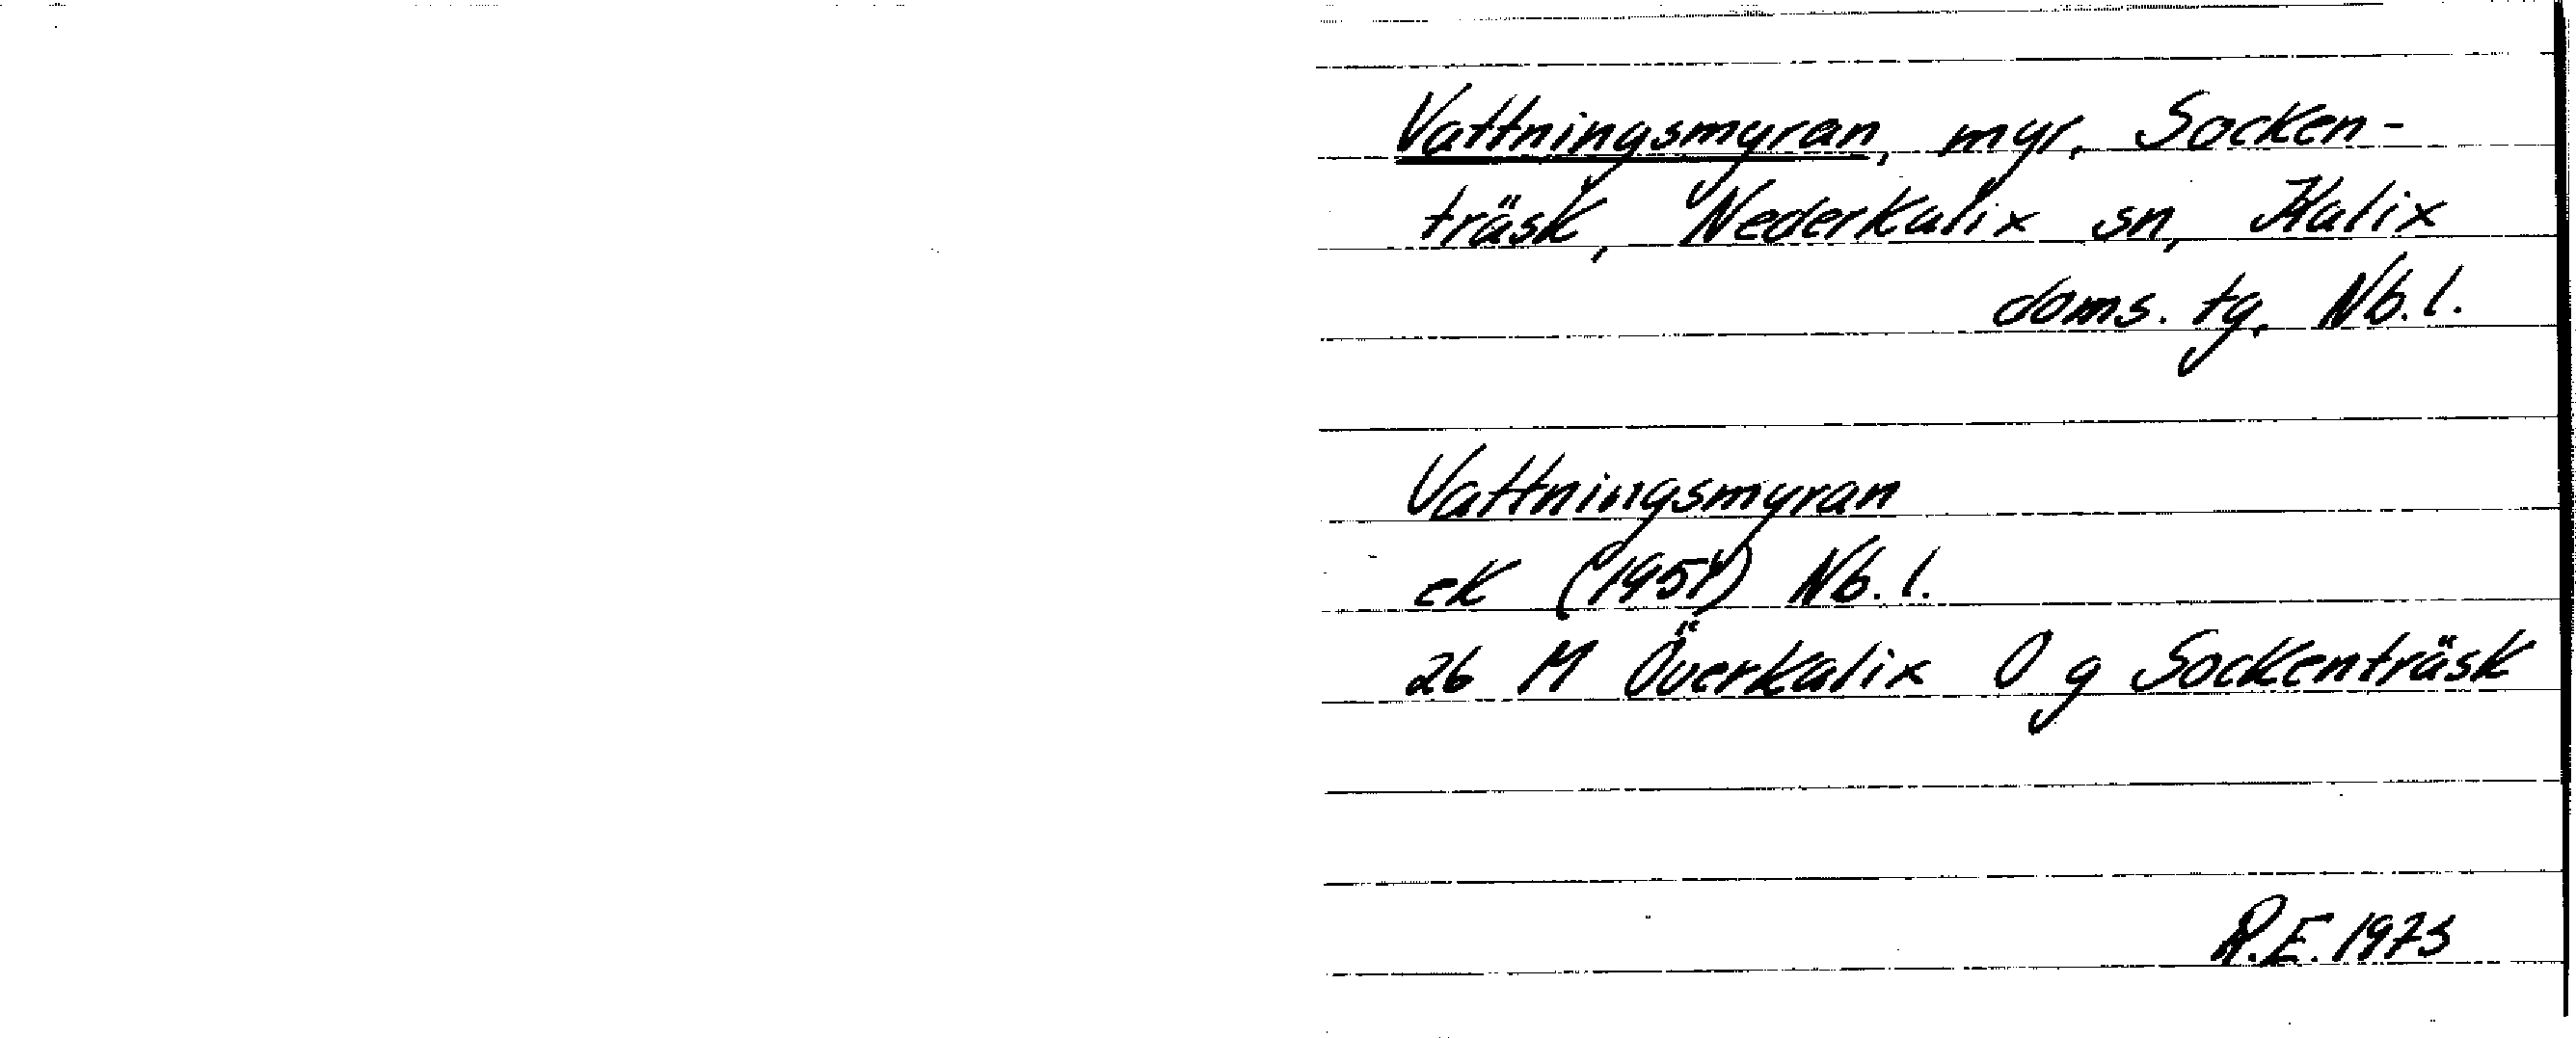 Vattningsmyran, myr, Socken-
träsk, Nederkalix sn, Kalix
doms. tg, Nb.l.
Vattningsmyran
ek (1951) Nb.l.
26 M Överkalix O g Sockenträsk
R.E. 1973